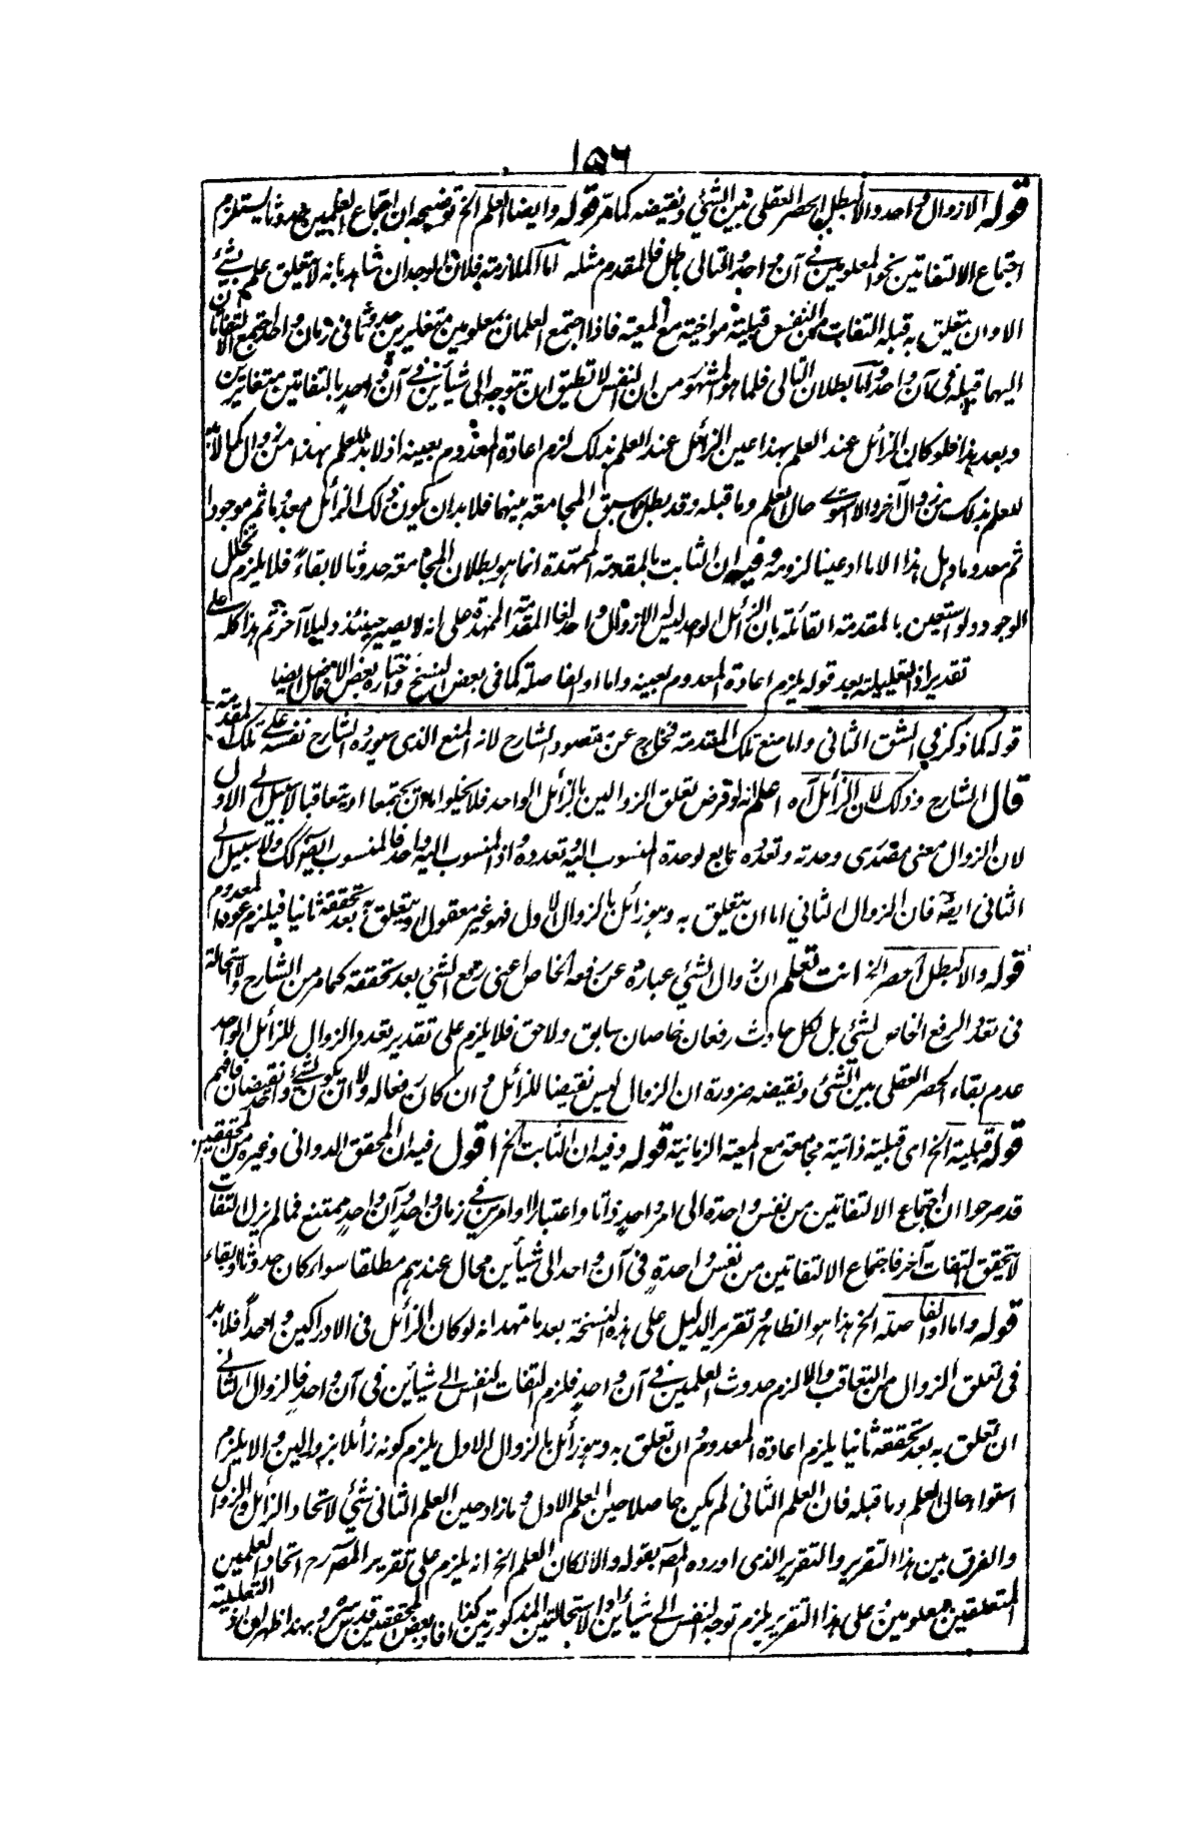 ١٥٦
قوله الا زوال واحد والا لبطل الحصر العقلي بين الشيء ونقيضه كما مر قوله وايضا العلم الخ توضيحه ان اجتماع العلمين حدوثا يستلزم
اجتماع الالتفاتين نحو المعلومين في آن واحد والتالي باطل فالمقدم مثله اما الملازمة فلان الوجدان شاهد بانه لا يتعلق علم بشيء
الا وان يتعلق به قبله التفات من النفس قبلية مواخية مع المعية فاذا اجتمع العلمان بمعلومين متغايرين حدوثا في زمان واحد اجتمع التفاتان
اليهما قبله في آن واحد واما بطلان التالي فلما هو المشهور من ان النفس لا تطيق ان تتوجه الى شيأين في آن واحد بالتفاتين متغايرين
وبعد هذا فلو كان الزائل عند العلم بهذا عين الزائل عند العلم بذلك لزم اعادة المعدوم بعينه اذ لا بد للعلم بهذا من زوال كما لا بد
للعلم بذلك من زوال آخر والا استوى حال العلم وما قبله وقد بطل سبق المجامعة بينهما فلا بد ان يكون ذلك الزائل معدوما ثم موجودا
ثم معدوما وهل هذا الا ما ادعينا لزومه وفيه ان الثابت بالمقدمة الممهدة انما هو بطلان المجامعة حدوثا لا بقاء فلا يلزم تخلل
الوجود ولو استعين بالمقدمة القائلة بان الزائل الواحد ليس له الا زوال واحد لغا المقدمة الممهدة على انه لا يصير حينئذ دليلا آخر ثم هذا كله على
تقدير اذ التعليلية بعد قوله يلزم اعادة المعدوم بعينه واما او الفاصلة كما في بعض النسخ واختاره بعض الافاضل ايضا
قوله كما ذكر في الشق الثاني واما منع تلك المقدمة فخارج عن مقصود الشارح لانه المنع الذي سيورده الشارح نفسه على تلك المقدمة
قال الشارح وذلك لان الزائل آه اعلم انه لو فرض تعلق الزوالين بالزائل الواحد فلا يخلو اما ان يجتمعا او يتعاقبا لا سبيل الى الاول
لان الزوال معنى مصدري وحدته وتعدده تابع لوحدة المنسوب اليه وتعدده واذ المنسوب اليه واحد فالمنسوب ايضا كذلك ولا سبيل الى
الثاني ايضا فان الزوال الثاني اما ان يتعلق به وهو زائل بالزوال الاول فهو غير معقول او يتعلق به بعد تحققه ثانيا فيلزم عود المعدوم
قوله والا لبطل الحصر الخ انت تعلم ان زوال الشيء عبارة عن رفعه الخاص اعني رفع الشيء بعد تحققه كما مر من الشارح ولا استحالة
في تعدد الرفع الخاص لشيء بل لكل حادث رفعان خاصان سابق ولاحق فلا يلزم على تقدير تعدد الزوال للزائل الواحد
عدم بقاء الحصر العقلي بين الشيء ونقيضه ضرورة ان الزوال ليس نقيضا للزائل وان كان رفعا له ولا ان يكون لشيء واحد نقيضان فافهم
قوله قبلية الخ اي قبلية ذاتية مجامعة مع المعية الزمانية قوله وفيه ان الثابت الخ اقول فيه ان المحقق الدواني وغيره من المحققين
قد صرحوا ان اجتماع الالتفاتين من نفس واحدة الى امر واحد ذاتا واعتبارا او امرين في زمان واحد وآن واحد ممتنع فما لم يزل التفات
لا يتحقق التفات آخر فاجتماع الالتفاتين من نفس واحدة في آن واحد الى شيأين محال عندهم مطلقا سواء كان حدوثا او بقاء
قوله واما او الفاصلة الخ هذا هو الظاهر وتقرير الدليل على هذه النسخة بعد ما تمهد انه لو كان الزائل في الادراكين واحدا فلا بد
في تعلق الزوال من التعاقب والا لزم حدوث العلمين في آن واحد فلزم التفات النفس الى شيأين في آن واحد فالزوال الثاني
ان تعلق به بعد تحققه ثانيا يلزم اعادة المعدوم وان تعلق به وهو زائل بالزوال الاول يلزم كونه زائلا بزوالين والا يلزم
استواء حال العلم وما قبله فان العلم الثاني لم يكن حاصلا حين العلم الاول وما زاد حين العلم الثاني شيء لاتحاد الزائل والزوال
والفرق بين هذا التقرير والتقرير الذي اورده المص بقوله والا لكان العلم الخ انه يلزم على تقرير المص رح اتحاد العلمين
المتعلقين بمعلومين وعلى هذا التقرير يلزم توجه النفس الى شيأين او الاستحالتين المذكورتين كذا افاد بعض المحققين قدس سره وبهذا ظهر ان اذ التعليلية